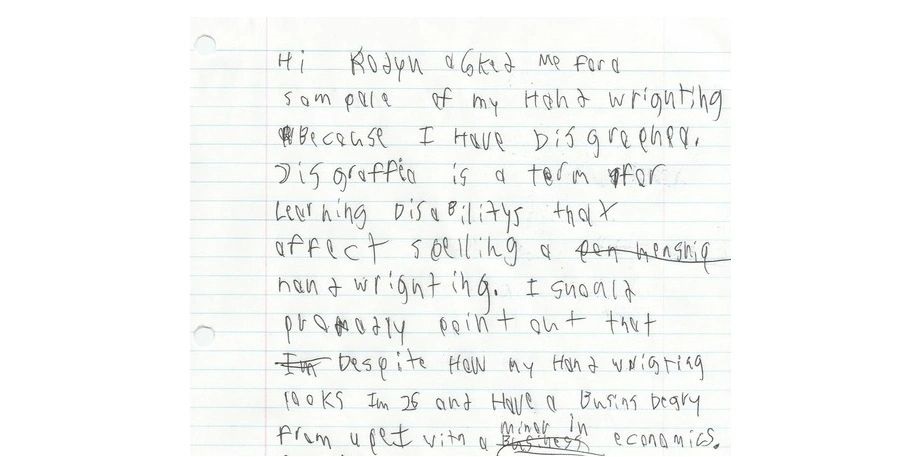 Hi Rodyn asked me for a
sam pale of my Hand wrighting
Because I Have Disgraphea.
Disgraffia is a term for
Learning Disabilitys that
affect spelling a pen menship
hand wrighting. I should
probably point out that
Im Despite How my Hand wrigting
looks Im 26 and Have a Busins Degry
minor in
from upei with a Business economics.